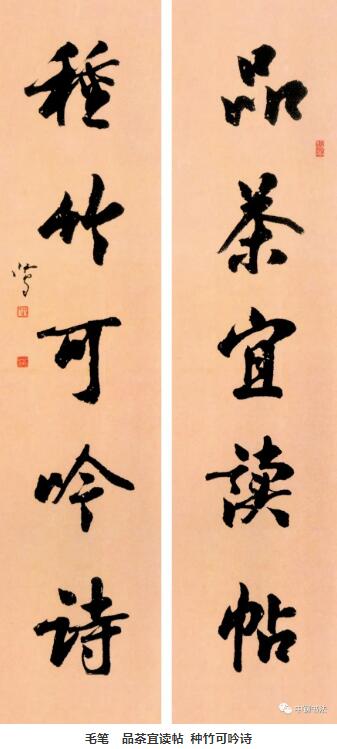 品茶宜读帖
种竹可吟诗
中钢书法
毛笔 品茶宜读帖 种竹可吟诗